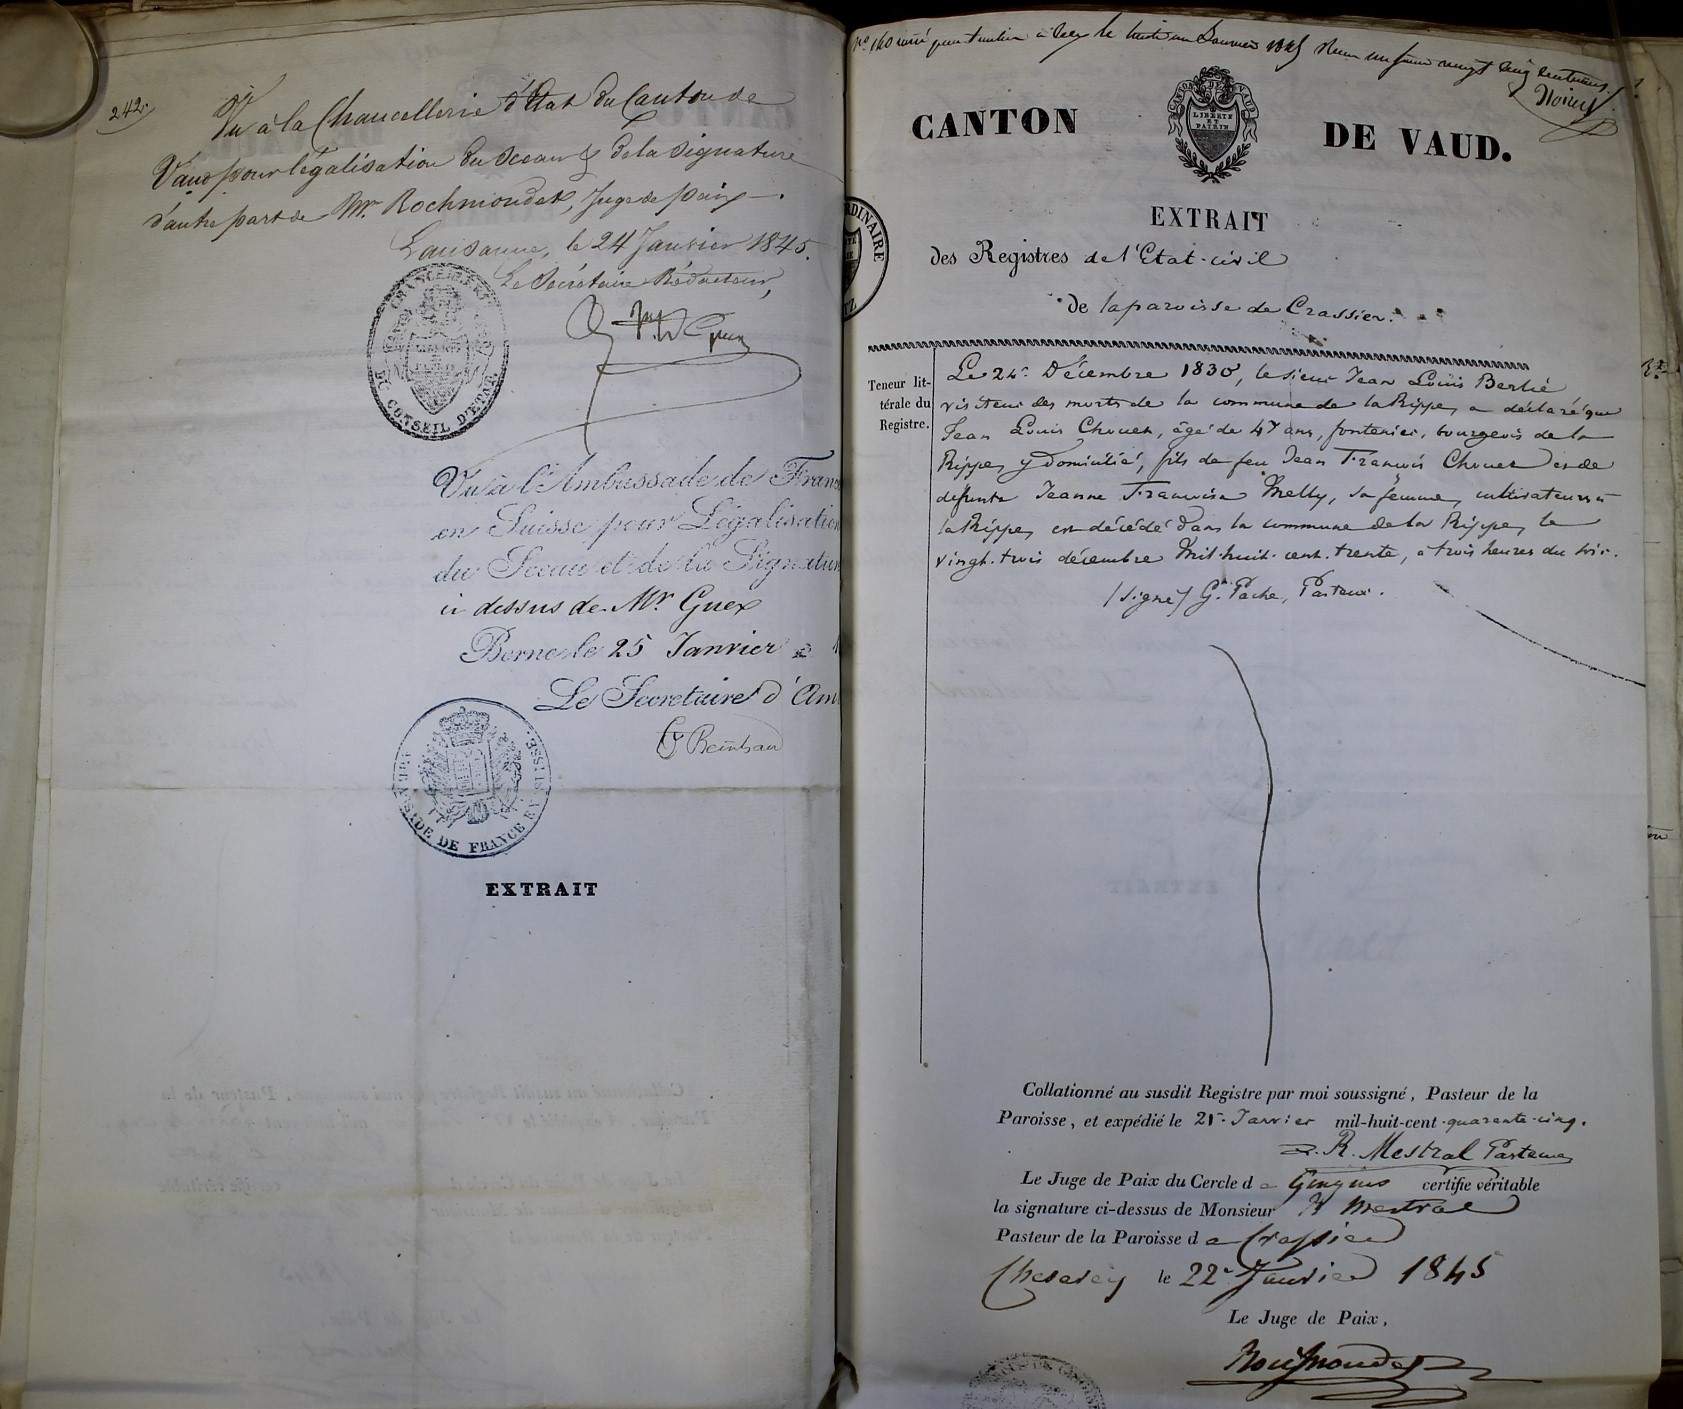 242.
Vu à la Chancellerie d'Etat du Canton de
Vaud pour légalisation du sceau & de la signature
d'autre part de Mr. Rochmondet, Juge de paix.
Lausanne, le 24 Janvier 1845.
Le Secrétaire Rédacteur,
CONSEIL D'ETAT.
Vu à l'Ambassade de Fran
en Suisse pour Légalisation
du Sceau et de la Signatur
ci dessus de Mr Guex
Berne le 25 Janvier
Le Secretaire d'Am
AMBASSADE DE FRANCE EN SUISSE
EXTRAIT
CANTON DE VAUD
LIBERTÉ
ET
PATRIE
CANTON DE VAUD.
DINAIRE
EXTRAIT
des Registres de l'Etat-civil
de la paroisse de Crassier.
Teneur lit-
térale du
Registre.
Le 24e Décembre 1830, le sieur Jean Louis Berlié
visiteur des morts de la commune de la Rippe, a déclaré que
Jean Louis Chouet, âgé de 47 ans, fontenier, bourgeois de la
Rippe, y domicilié, fils de feu Jean François Chouet et de
défunte Jeanne Françoise Melly, sa femme, cultivateurs à
la Rippe, est décédé dans la commune de la Rippe, le
vingt-trois décembre mil-huit-cent-trente, à trois heures du soir.
/signé/ G. Pache, Pasteur.
Collationné au susdit Registre par moi soussigné, Pasteur de la
Paroisse, et expédié le 21. Janvier mil-huit-cent-quarante-cinq.
R. Mestral Pasteur
Le Juge de Paix du Cercle de Gingins certifie véritable
la signature ci-dessus de Monsieur R Mestral
Pasteur de la Paroisse de Crassier
Cheserex le 22e Janvier 1845
Le Juge de Paix,